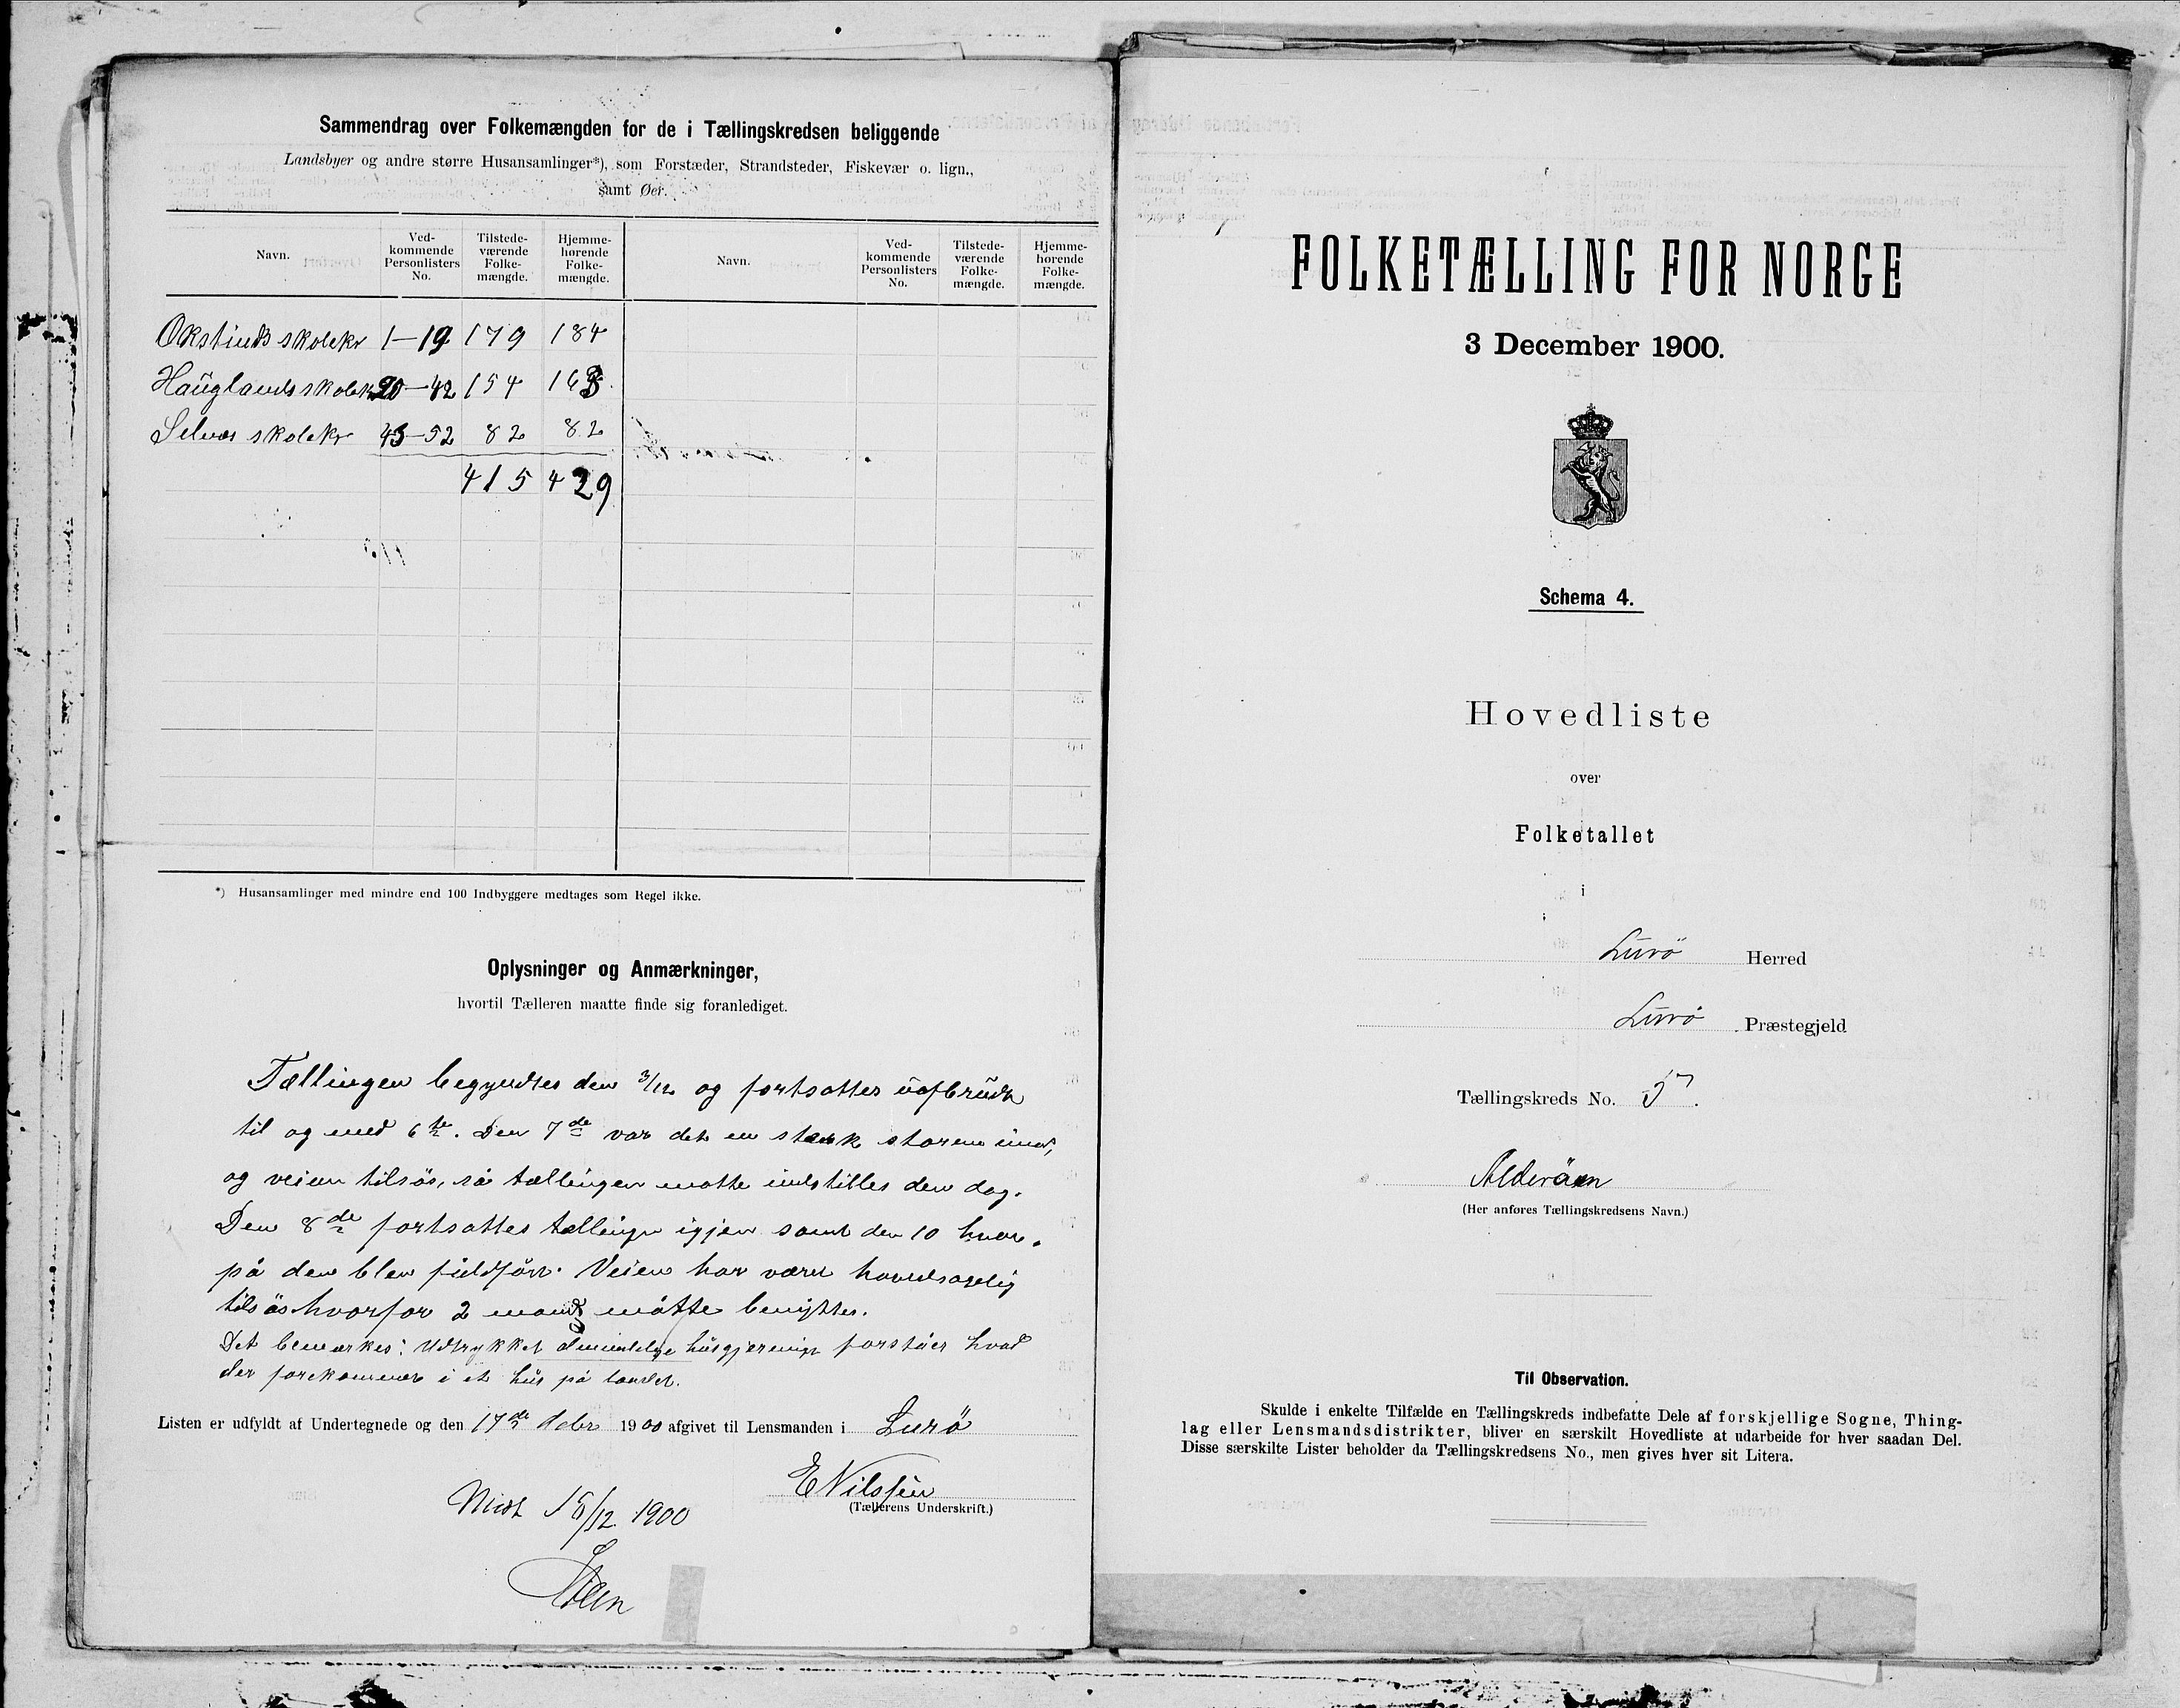 Sammendrag over Folkemængden for de i Tællingskredsen beliggende
Landsbyer og andre større Husansamlinger*), som Forstæder, Strandsteder, Fiskevær o. lign.,
samt Øer.
Navn. Ved-kommende Personlisters No. Tilstede-værende Folke-mængde. Hjemme-hørende Folke-mængde. Navn. Ved-kommende Personlisters No. Tilstede-værende Folke-mængde. Hjemme-hørende Folke-mængde.
Okstinds skolekr 1–19 179 184
Hauglands skolekr 20–42 154 163
Selvær skolekr 43–52 82 82
415 429
*) Husansamlinger med mindre end 100 Indbyggere medtages som Regel ikke.
Oplysninger og Anmærkninger,
hvortil Tælleren maatte finde sig foranlediget.
Tællingen begyndtes den 3/12 og fortsattes uafbrudt
til og med 6te. Den 7de var det en stærk storm
og veien tilsøs, så tællingen motte indstilles den dag.
Den 8de fortsattes tællingen igjen samt den 10 hvor-
på den blev fuldført. Veien har været hovedsagelig
tilsøs hvorfor 2 mand måtte benyttes.
Det bemærkes: Udtrykket almindelige husgjerninger forståes hvad
der forekommer i et hus på landet.
Listen er udfyldt af Undertegnede og den 17de debr 1900 afgivet til Lensmanden i Lurö
E Nilssen
(Tællerens Underskrift.)
15/12 1900
FOLKETÆLLING FOR NORGE
3 December 1900.
Schema 4.
Hovedliste
over
Folketallet
i
Lurö Herred
Lurö Præstegjeld
Tællingskreds No. 5.
Alderöen
(Her anføres Tællingskredsens Navn.)
Til Observation.
Skulde i enkelte Tilfælde en Tællingskreds indbefatte Dele af forskjellige Sogne, Thing-
lag eller Lensmandsdistrikter, bliver en særskilt Hovedliste at udarbeide for hver saadan Del.
Disse særskilte Lister beholder da Tællingskredsens No., men gives hver sit Litera.